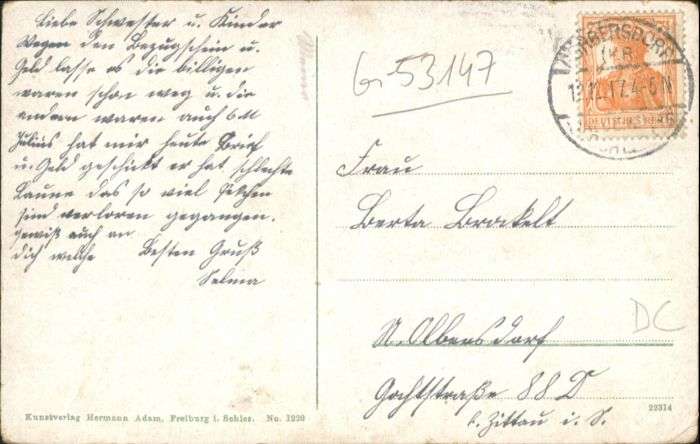 Liebe Schwester u. Kinder
Wegen den Bezugschein u.
Geld lasse es die billigen
waren schon weg u. die
andern waren auch 6 M
Julius hat mir heute Brief
u. Geld geschickt er hat schlechte
Laune das so viel Päckchen
sind verloren gegangen.
Gewiß auch an
dich welche Besten Gruß
Selma
G 53147
13.12.17.4-5N
DEUTSCHES REICH
Frau
Berta Brakelt
N. Olbersdorf
Gochtstraße 88 D
b. Zittau i. S.
DC
Kunstverlag Hermann Adam, Freiburg i. Schles. No. 1220
22314